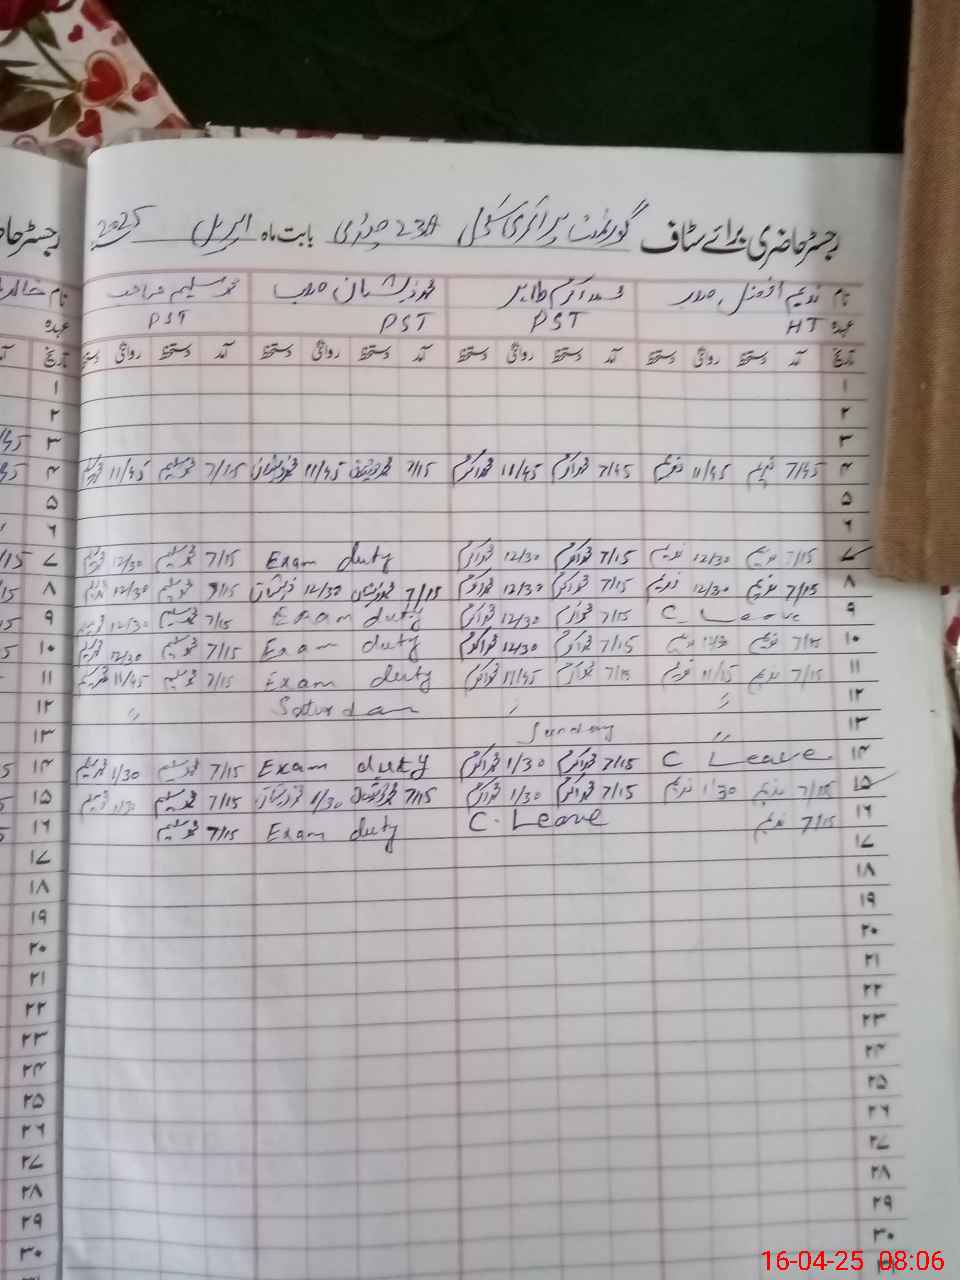 رجسٹر حاضری برائے سٹاف گورنمنٹ پرائمری سکول 238 بابت ماہ اپریل 2025
نام ندیم افضل محمد اکرم طاہر محمد ذیشان محمد سلیم
عہدہ HT PST PST PST
تاریخ آمد دستخط روانگی دستخط آمد دستخط روانگی دستخط آمد دستخط روانگی دستخط آمد دستخط روانگی دستخط
۱
۲
۳
۴ 7/45 ندیم 11/45 ندیم 7/45 محمد اکرم 11/45 محمد اکرم 7/15 محمد ذیشان 11/45 محمد ذیشان 7/15 محمد سلیم 11/45 محمد سلیم
۵
۶
۷ 7/15 ندیم 12/30 ندیم 7/15 محمد اکرم 12/30 محمد اکرم Exam duty 7/15 محمد سلیم 12/30 محمد سلیم
۸ 7/15 ندیم 12/30 ندیم 7/15 محمد اکرم 12/30 محمد اکرم 7/15 محمد ذیشان 12/30 محمد ذیشان 7/15 محمد سلیم 12/30 محمد سلیم
۹ C. Leave 7/15 محمد اکرم 12/30 محمد اکرم Exam duty 7/15 محمد سلیم 12/30 محمد سلیم
۱۰ 7/15 ندیم ندیم 7/15 محمد اکرم 12/30 محمد اکرم Exam duty 7/15 محمد سلیم 12/30 محمد سلیم
۱۱ 7/15 ندیم 11/15 ندیم 7/15 محمد اکرم 11/45 محمد اکرم Exam duty 7/15 محمد سلیم 11/45 محمد سلیم
۱۲ " " Saturdan "
۱۳ " Sunday
۱۴ C Leave 7/15 محمد اکرم 1/30 محمد اکرم Exam duty 7/15 محمد سلیم 1/30 محمد سلیم
۱۵ 7/15 ندیم 1/30 ندیم 7/15 محمد اکرم 1/30 محمد اکرم 7/15 محمد ذیشان 1/30 محمد ذیشان 7/15 محمد سلیم محمد سلیم
۱۶ 7/15 ندیم C. Leave Exam duty 7/15 محمد سلیم
۱۷
۱۸
۱۹
۲۰
۲۱
۲۲
۲۳
۲۴
۲۵
۲۶
۲۷
۲۸
۲۹
۳۰
16-04-25 08:06